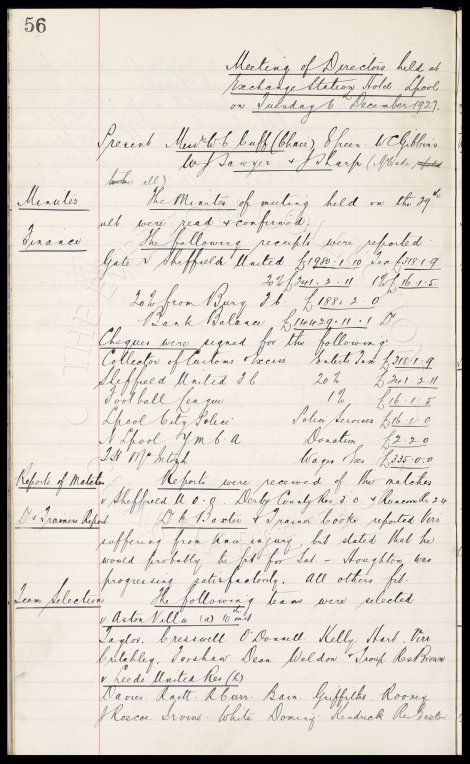 56
Meeting of Directors held at
Exchange Station Hotel Lpool
on Tuesday 6 December 1927.
Present Messrs W C Cuff (Chair) E Green W C Gibbins
W J Sawyer & J Sharp (A Wade
all)
Minutes The Minutes of meeting held on the 29th
ult were read & confirmed
Finance The following receipts were reported
Gate v Sheffield United £1980.1.10 Tax £318.1.9
20% £241.2.11 1% £16.1.5
20% from Bury F C £188.2.0
Bank Balance £14429.11.1 Dr
Cheques were signed for the following
Collector of Customs & Excise Enterts Tax £318.1.9
Sheffield United F C 20% £241.2.11
Football League 1% £16.1.5
Lpool City Police Police Services £16.1.0
N Lpool Y M C A Donation £2.2.0
T H McIntosh Wages & Exs £335.0.0
Reports of Matches Reports were received of the matches
v Sheffield U 0.0. Derby County Res 3.0 & Runcorn Res 2.4
Dr & Trainers Report Dr C Baxter & Trainer Cooke reported Virr
suffering from knee injury, but stated that he
would probably be fit for Sat – Houghton was
progressing satisfactorily. All others fit.
Team Selections The following teams were selected
v Aston Villa (a) 10th inst
Taylor. Cresswell O'Donnell. Kelly Hart. Virr
Critchley. Forshaw Dean Weldon & Troup Res Brown
v Leeds United Res (h)
Davies. Raitt. R Curr. Bain. Griffiths. Rooney
J Roscoe. Irvine. White. Dominy. Kendrick Res